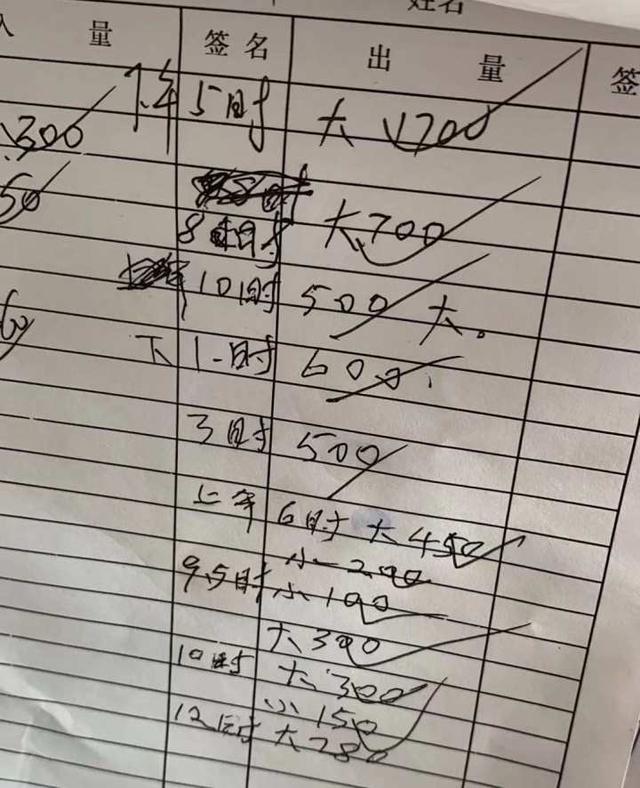 姓名
量 签名 出 量 签
300 下午 5时 大 1700
50
8时 大700
10时 500 大。
60 下 1时 600.
3时 500
上午 6时 大450
小200
9.5时 小100
大300
10时 大300
小150
12时 大280